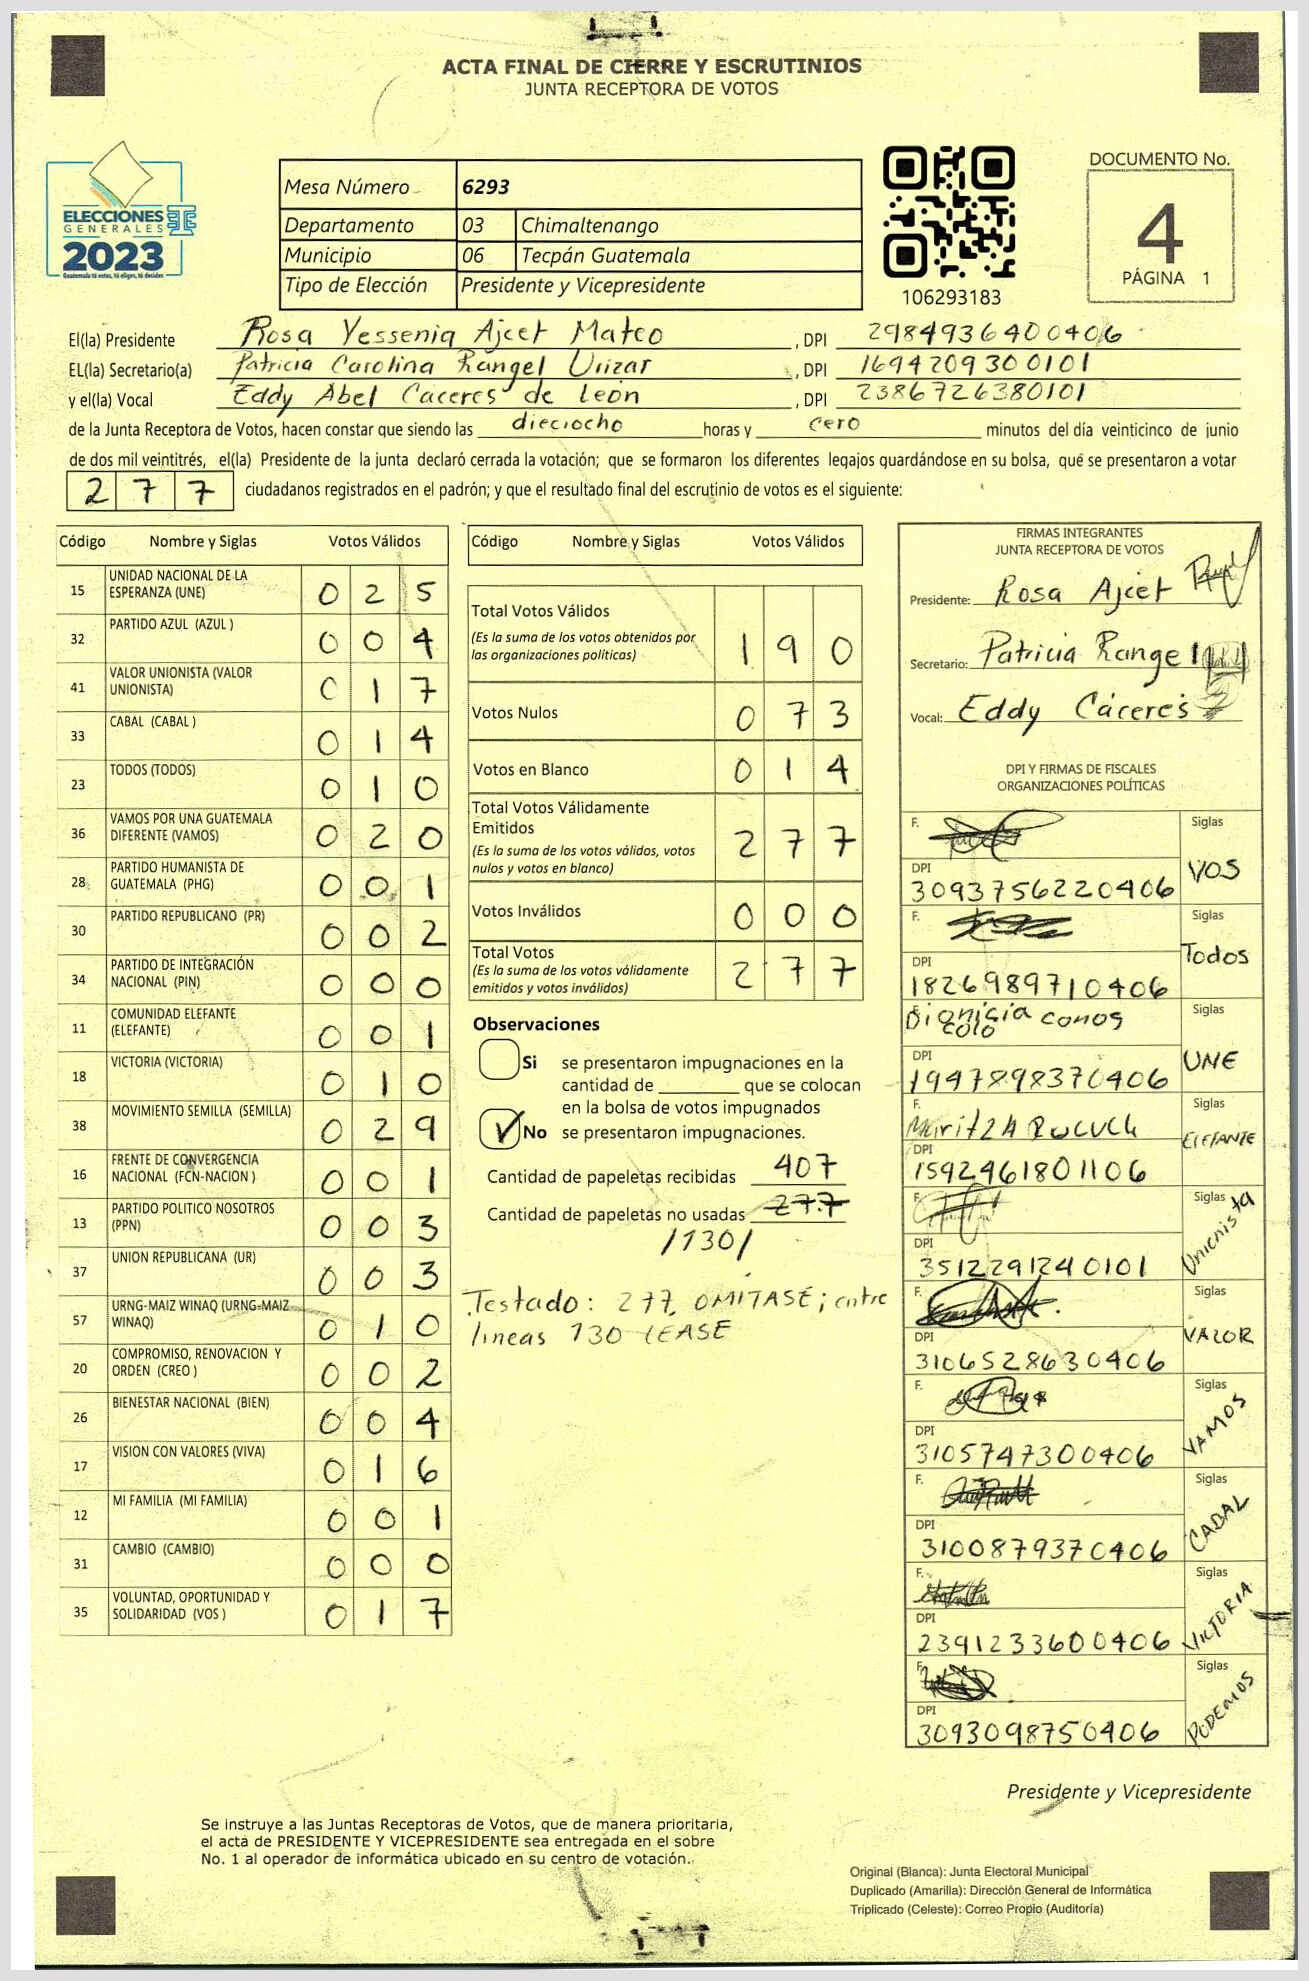 ACTA FINAL DE CIERRE Y ESCRUTINIOS
JUNTA RECEPTORA DE VOTOS
ELECCIONES
GENERALES
2023
Guatemala tú votas, tú eliges, tú decides
Mesa Número 6293
Departamento 03 Chimaltenango
Municipio 06 Tecpán Guatemala
Tipo de Elección Presidente y Vicepresidente
106293183
DOCUMENTO No.
4
PÁGINA 1
El(la) Presidente Rosa Yessenia Ajcet Mateo, DPI 2984936400406
EL(la) Secretario(a) Patricia Carolina Rangel Urizar, DPI 1694209300101
y el(la) Vocal Eddy Abel Caceres de León, DPI 2386726380101
de la Junta Receptora de Votos, hacen constar que siendo las dieciocho horas y cero minutos del día veinticinco de junio
de dos mil veintitrés, el(la) Presidente de la junta declaró cerrada la votación; que se formaron los diferentes legajos guardándose en su bolsa, que se presentaron a votar
277 ciudadanos registrados en el padrón; y que el resultado final del escrutinio de votos es el siguiente:
Código Nombre y Siglas Votos Válidos
15 UNIDAD NACIONAL DE LA ESPERANZA (UNE) 025
32 PARTIDO AZUL (AZUL ) 004
41 VALOR UNIONISTA (VALOR UNIONISTA) 017
33 CABAL (CABAL ) 014
23 TODOS (TODOS) 010
36 VAMOS POR UNA GUATEMALA DIFERENTE (VAMOS) 020
28 PARTIDO HUMANISTA DE GUATEMALA (PHG) 001
30 PARTIDO REPUBLICANO (PR) 002
34 PARTIDO DE INTEGRACIÓN NACIONAL (PIN) 000
11 COMUNIDAD ELEFANTE (ELEFANTE) 001
18 VICTORIA (VICTORIA) 010
38 MOVIMIENTO SEMILLA (SEMILLA) 029
16 FRENTE DE CONVERGENCIA NACIONAL (FCN-NACION ) 001
13 PARTIDO POLITICO NOSOTROS (PPN) 003
37 UNION REPUBLICANA (UR) 003
57 URNG-MAIZ WINAQ (URNG-MAIZ WINAQ) 010
20 COMPROMISO, RENOVACION Y ORDEN (CREO ) 002
26 BIENESTAR NACIONAL (BIEN) 004
17 VISION CON VALORES (VIVA) 016
12 MI FAMILIA (MI FAMILIA) 001
31 CAMBIO (CAMBIO) 000
35 VOLUNTAD, OPORTUNIDAD Y SOLIDARIDAD (VOS ) 017
Código Nombre y Siglas Votos Válidos
Total Votos Válidos
(Es la suma de los votos obtenidos por las organizaciones políticas) 190
Votos Nulos 073
Votos en Blanco 014
Total Votos Válidamente Emitidos
(Es la suma de los votos válidos, votos nulos y votos en blanco) 277
Votos Inválidos 000
Total Votos
(Es la suma de los votos válidamente emitidos y votos inválidos) 277
Observaciones
Si se presentaron impugnaciones en la
cantidad de ________ que se colocan
en la bolsa de votos impugnados
No se presentaron impugnaciones.
Cantidad de papeletas recibidas 407
Cantidad de papeletas no usadas 277
/130/
Testado: 277, OMITASE; entre
lineas 130 LEASE
FIRMAS INTEGRANTES
JUNTA RECEPTORA DE VOTOS
Presidente: Rosa Ajcet
Secretario: Patricia Rangel
Vocal: Eddy Cáceres
DPI Y FIRMAS DE FISCALES
ORGANIZACIONES POLÍTICAS
F. Siglas
DPI VOS
3093756220406
F. Siglas
DPI Todos
1826989710406
F. Dionicia conos Siglas
colo
DPI UNE
1947898370406
F. Siglas
Maritza
DPI ELEFANTE
1592461801106
F. Siglas
DPI Unionista
3512291240101
F. Siglas
DPI VALOR
3106528630406
F. Siglas
DPI VAMOS
3105747300406
F. Siglas
DPI CABAL
3100879370406
F. Siglas
DPI VICTORIA
2391233600406
F. Siglas
DPI PODEMOS
3093098750406
Presidente y Vicepresidente
Se instruye a las Juntas Receptoras de Votos, que de manera prioritaria,
el acta de PRESIDENTE Y VICEPRESIDENTE sea entregada en el sobre
No. 1 al operador de informática ubicado en su centro de votación.
Original (Blanca): Junta Electoral Municipal
Duplicado (Amarilla): Dirección General de Informática
Triplicado (Celeste): Correo Propio (Auditoría)